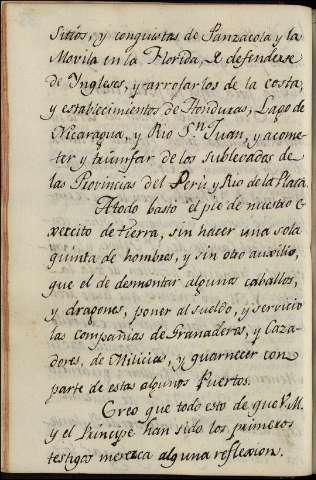 Sitios, y conquistas de Panzacola y la
Movila en la Florida, â defenderse
de Yngleses, y arrojarlos de la costa,
y establecimientos de Honduras, Lago de
Nicaragua, y Rio Sn. Juan, y acome-
ter y triunfar de los sublevados de
las Provincias del Perù y Rio de la Plata.
A todo bastò el pie de nuestro e-
xercito de tierra, sin hacer una sola
quinta de hombres, y sin otro auxilio,
que el de desmontar algunos caballos,
y dragones, poner al sueldo, y servicio
las compañias de Granaderos, y Caza-
dores, de Milicias, y guarnecer con
parte de estas algunos Puertos.
Creo que todo esto de que V. M.
y el Principe han sido los primeros
testigos merezca alguna reflexion.